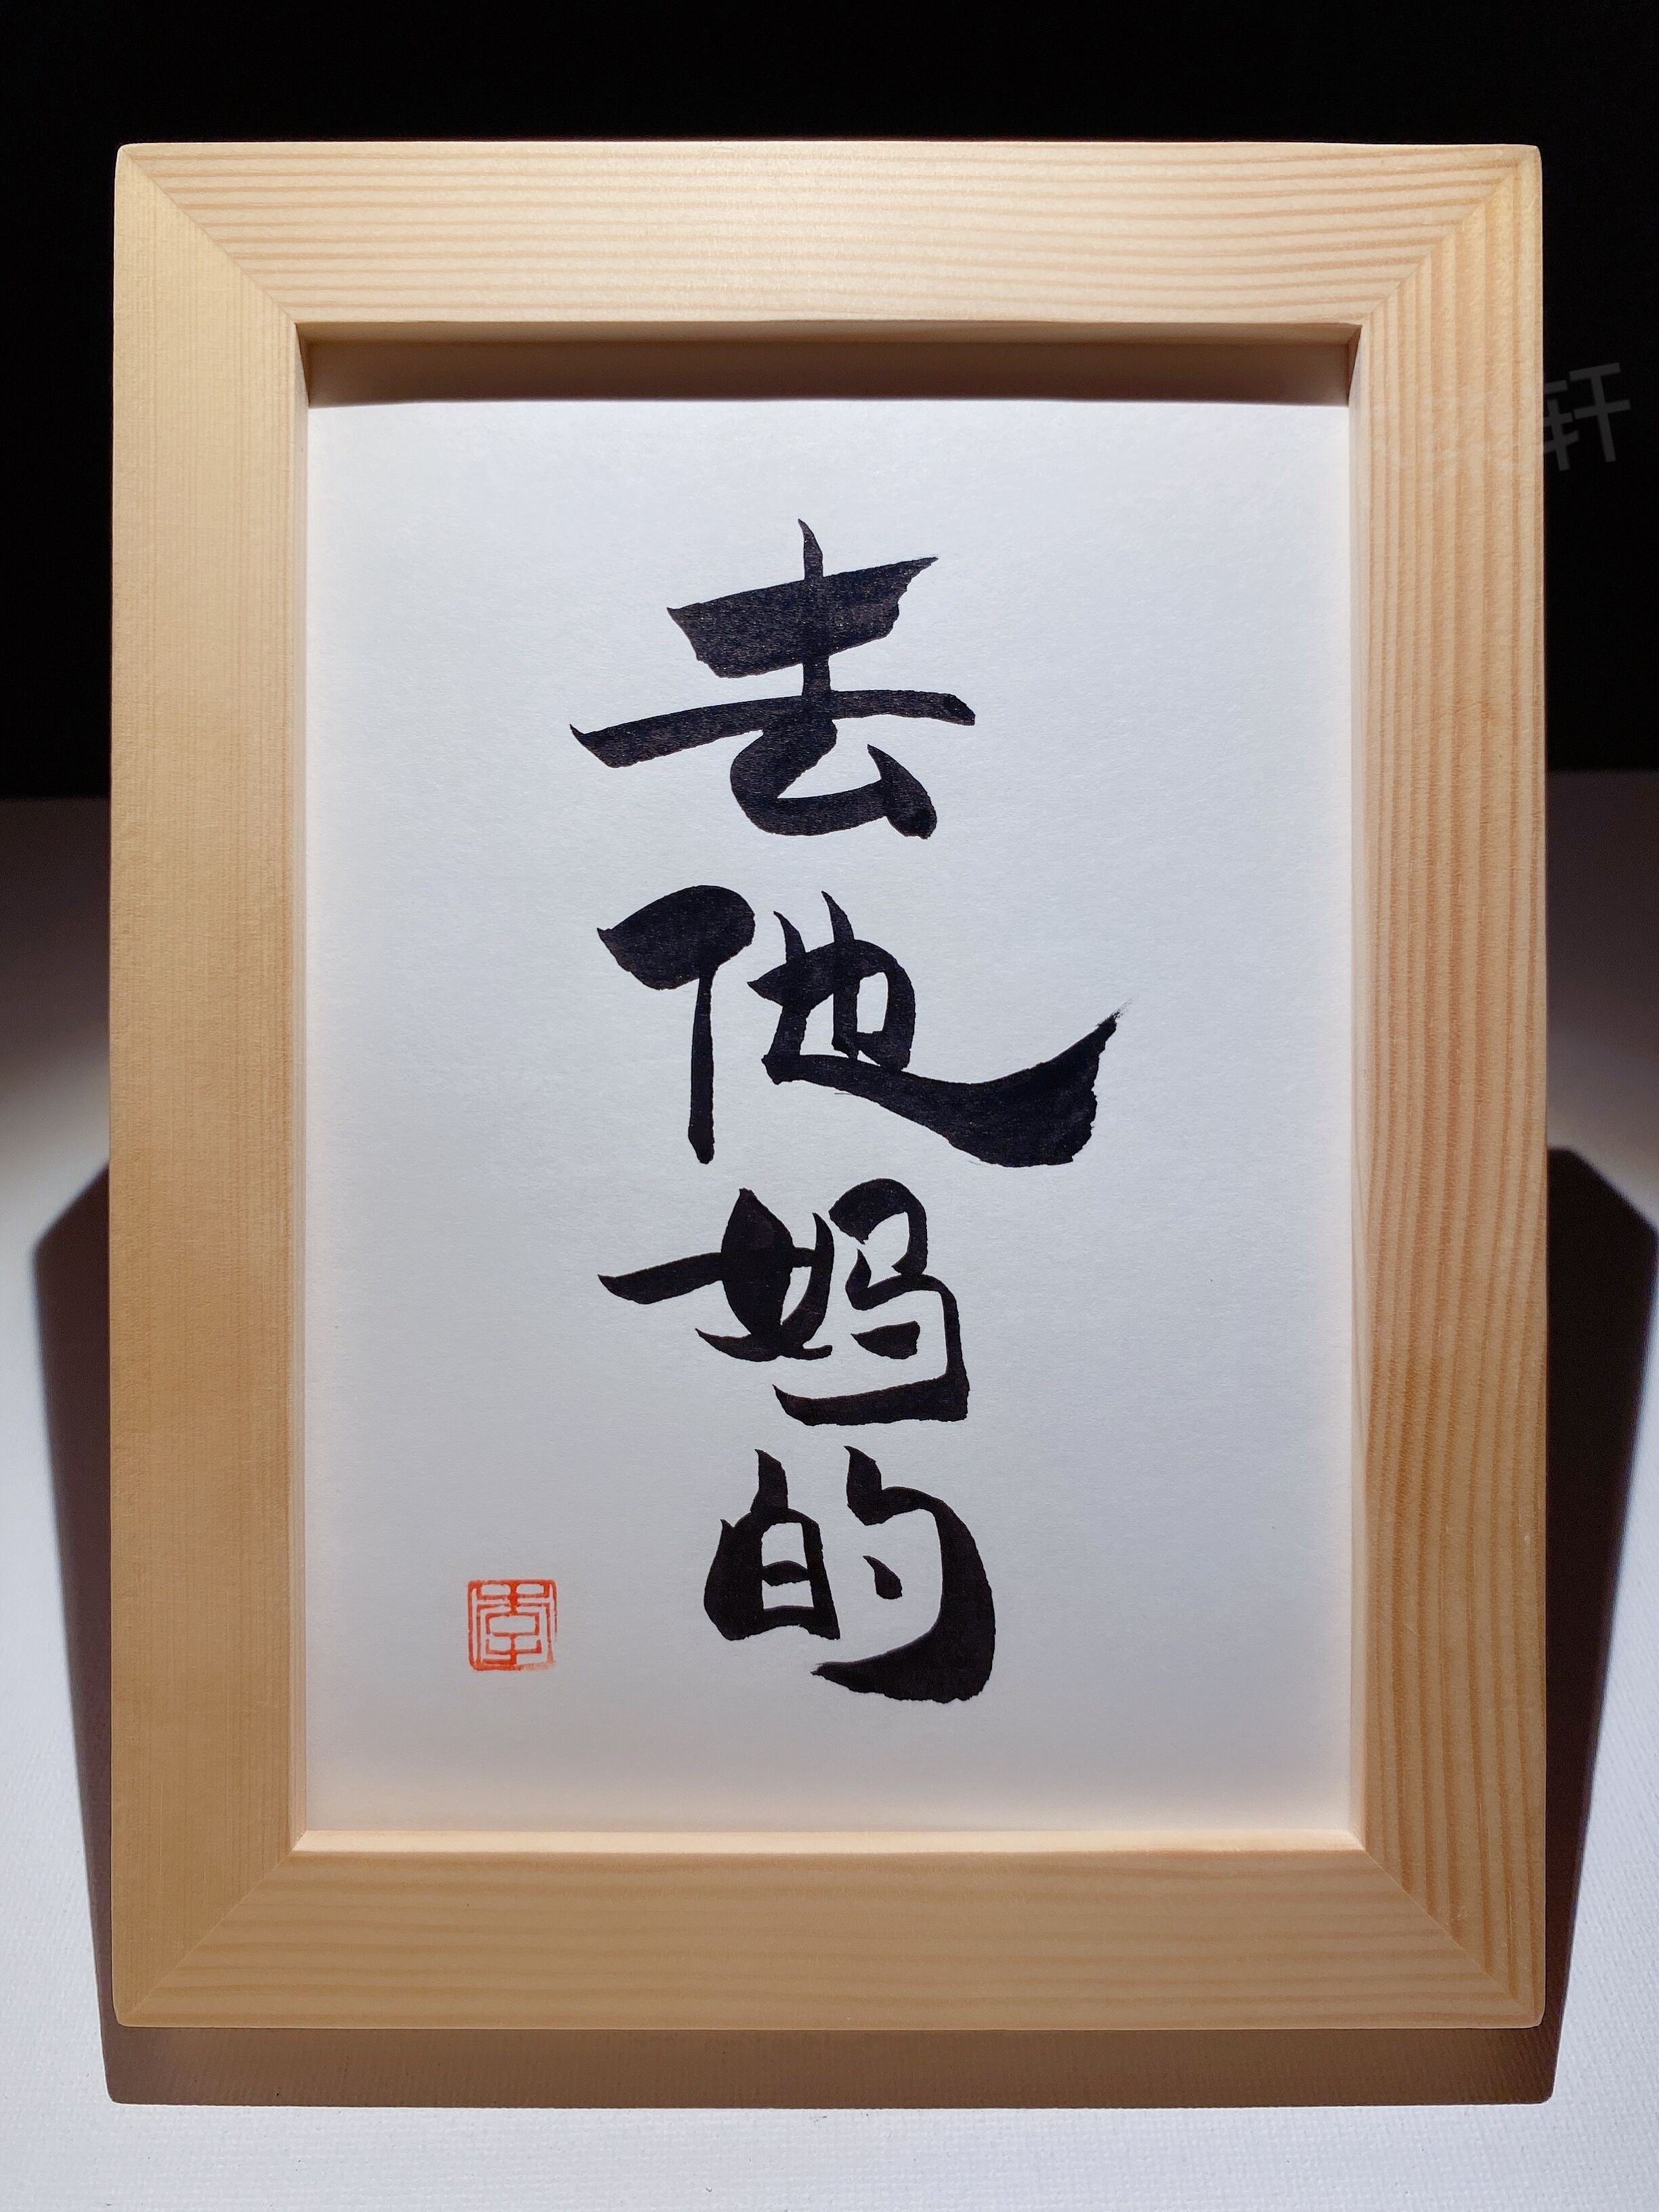 去他妈的
轩